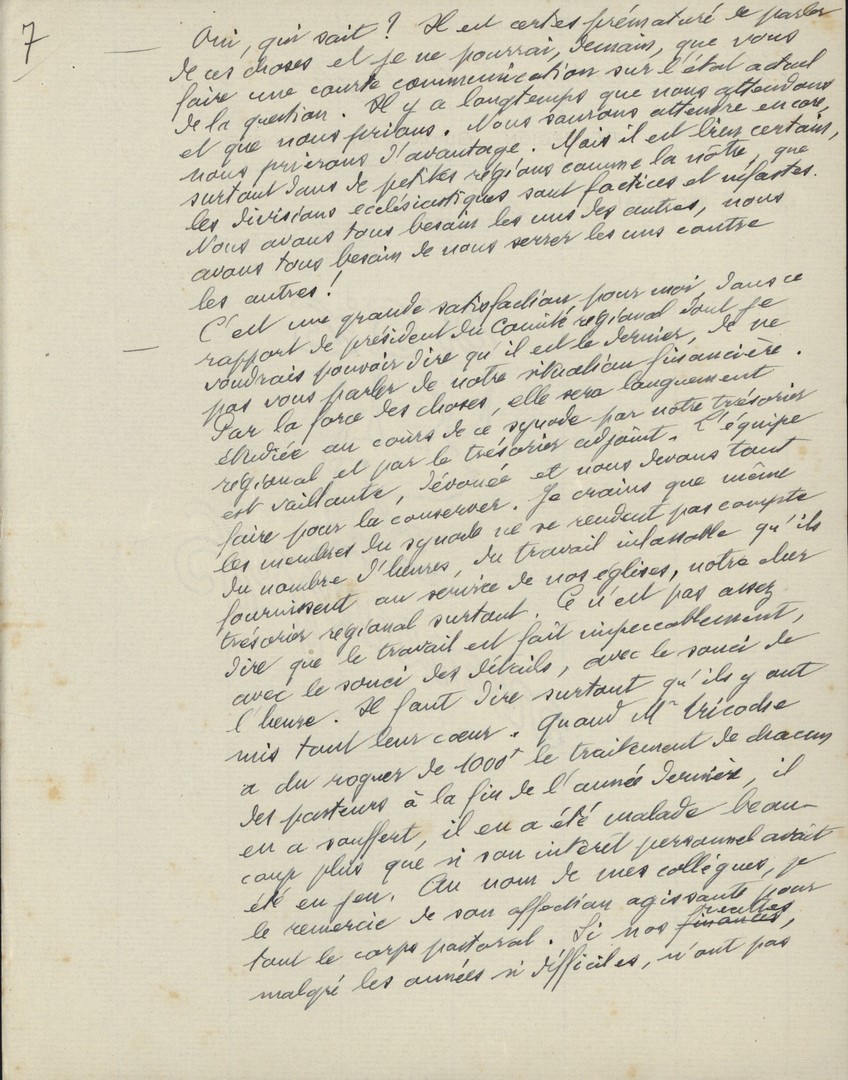 7
— Oui, qui sait ? Il est certes prématuré de parler
de ces choses et je ne pourrai, demain, que vous
faire une courte communication sur l'état actuel
de la question. Il y a longtemps que nous attendons
et que nous prions. Nous saurons attendre encore,
nous prierons d'avantage. Mais il est bien certain,
surtout dans de petites régions comme la nôtre, que
les divisions ecclésiastiques sont factices et néfastes.
Nous avons tous besoin les uns des autres, nous
avons tous besoin de nous serrer les uns contre
les autres !
— C'est une grande satisfaction pour moi, dans ce
rapport de président du Comité régional dont je
voudrais pouvoir dire qu'il est le dernier, de ne
pas vous parler de notre situation financière.
Par la force des choses, elle sera longuement
étudiée au cours de ce synode par notre trésorier
régional et par le trésorier adjoint. L'équipe
est vaillante, dévouée et nous devons tout
faire pour la conserver. Je crains que même
les membres du synode ne se rendent pas compte
du nombre d'heures, du travail inlassable qu'ils
fournissent au service de nos églises, notre cher
trésorier régional surtout. Ce n'est pas assez
dire que le travail est fait impeccablement,
avec le souci des détails, avec le souci de
l'heure. Il faut dire surtout qu'ils y ont
mis tout leur cœur. Quand Mr Tricoche
a du rogner de 1000f le traitement de chacun
des pasteurs à la fin de l'année dernière, il
en a souffert, il en a été malade beau-
coup plus que si son intérêt personnel avait
été en jeu. Au nom de mes collègues, je
le remercie de son affection agissante pour
tout le corps pastoral. Si nos finances recettes,
malgré les années si difficiles, n'ont pas